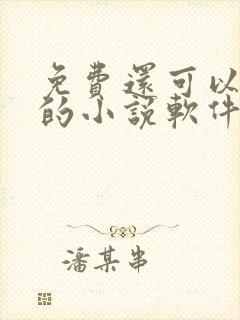 免費還可以
的小說軟件
潘某串